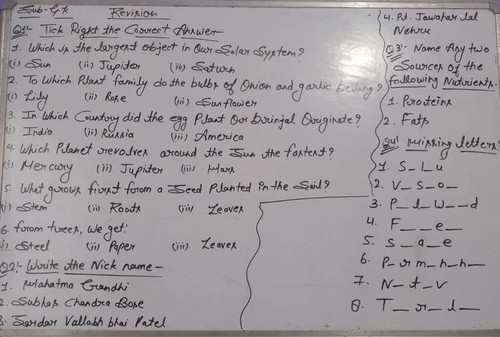 Sub-G.K Revision
Q1- Tick Right the Correct Answer
1. Which is the largest object in Our Solar System?
(i) Sun (ii) Jupiter (ii) Saturn
2. To Which Plant family do the bulbs of Onion and garlic belong?
(i) Lily (ii) Rose (iii) Sunflower
3. In Which Country did the egg Plant Or Brinjal Originate?
(i) India (ii) Russia (iii) America
4. Which Planet revolves around the Sun the fastest?
(i) Mercury (ii) Jupiter (iii) Mars
5. What grows first from a Seed Planted in the Soil?
(i) Stem (ii) Roots (iii) Leaves
6. from trees, we get:
(i) Steel (ii) Paper (iii) Leaves
Q2- Write the Nick name-
1. Mahatma Gandhi
2. Subhas Chandra Bose
3. Sardar Vallabh bhai Patel
4. Pd. Jawahar lal
Nehru
Q3- Name Any two
Sources of the
following Nutrients.
1. Proteins
2. Fats
Q4- Missing letters
1. S _ L u
2. V _ S _ o _
3. P _ l _ W _ _ d
4. F _ _ e _
5. S _ a _ e
6. P _ r m _ n _ n _
7. N _ t _ v
8. T _ _ r _ d _